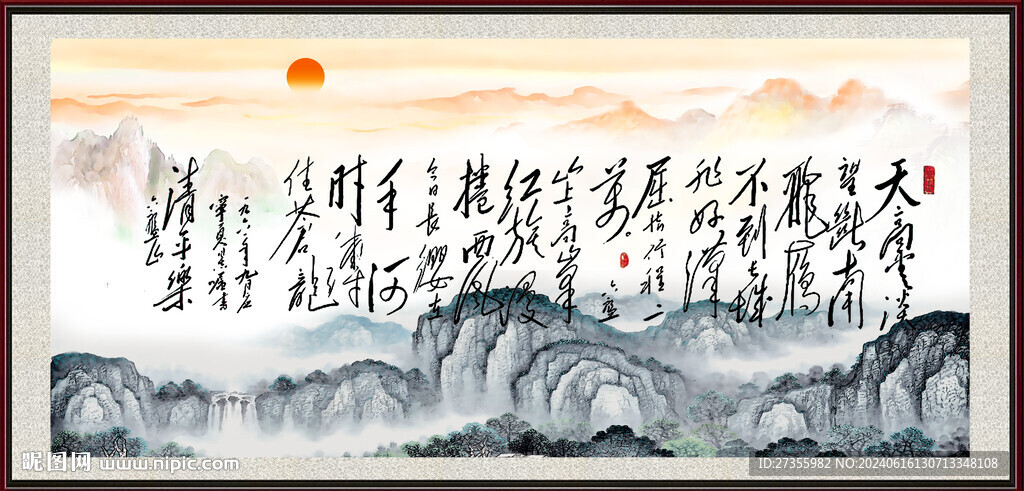 天高雲淡
望斷南
飛雁
不到長城
非好漢
屈指行程二
萬。
六盤
山上高峰
红旗漫
捲西風
今日長纓在
手何
時縛
住蒼龍
一九六一年九月应
寧夏嘱書
清平樂
六盤山
昵图网 www.nipic.com
ID:27355982 NO:20240616130713348108